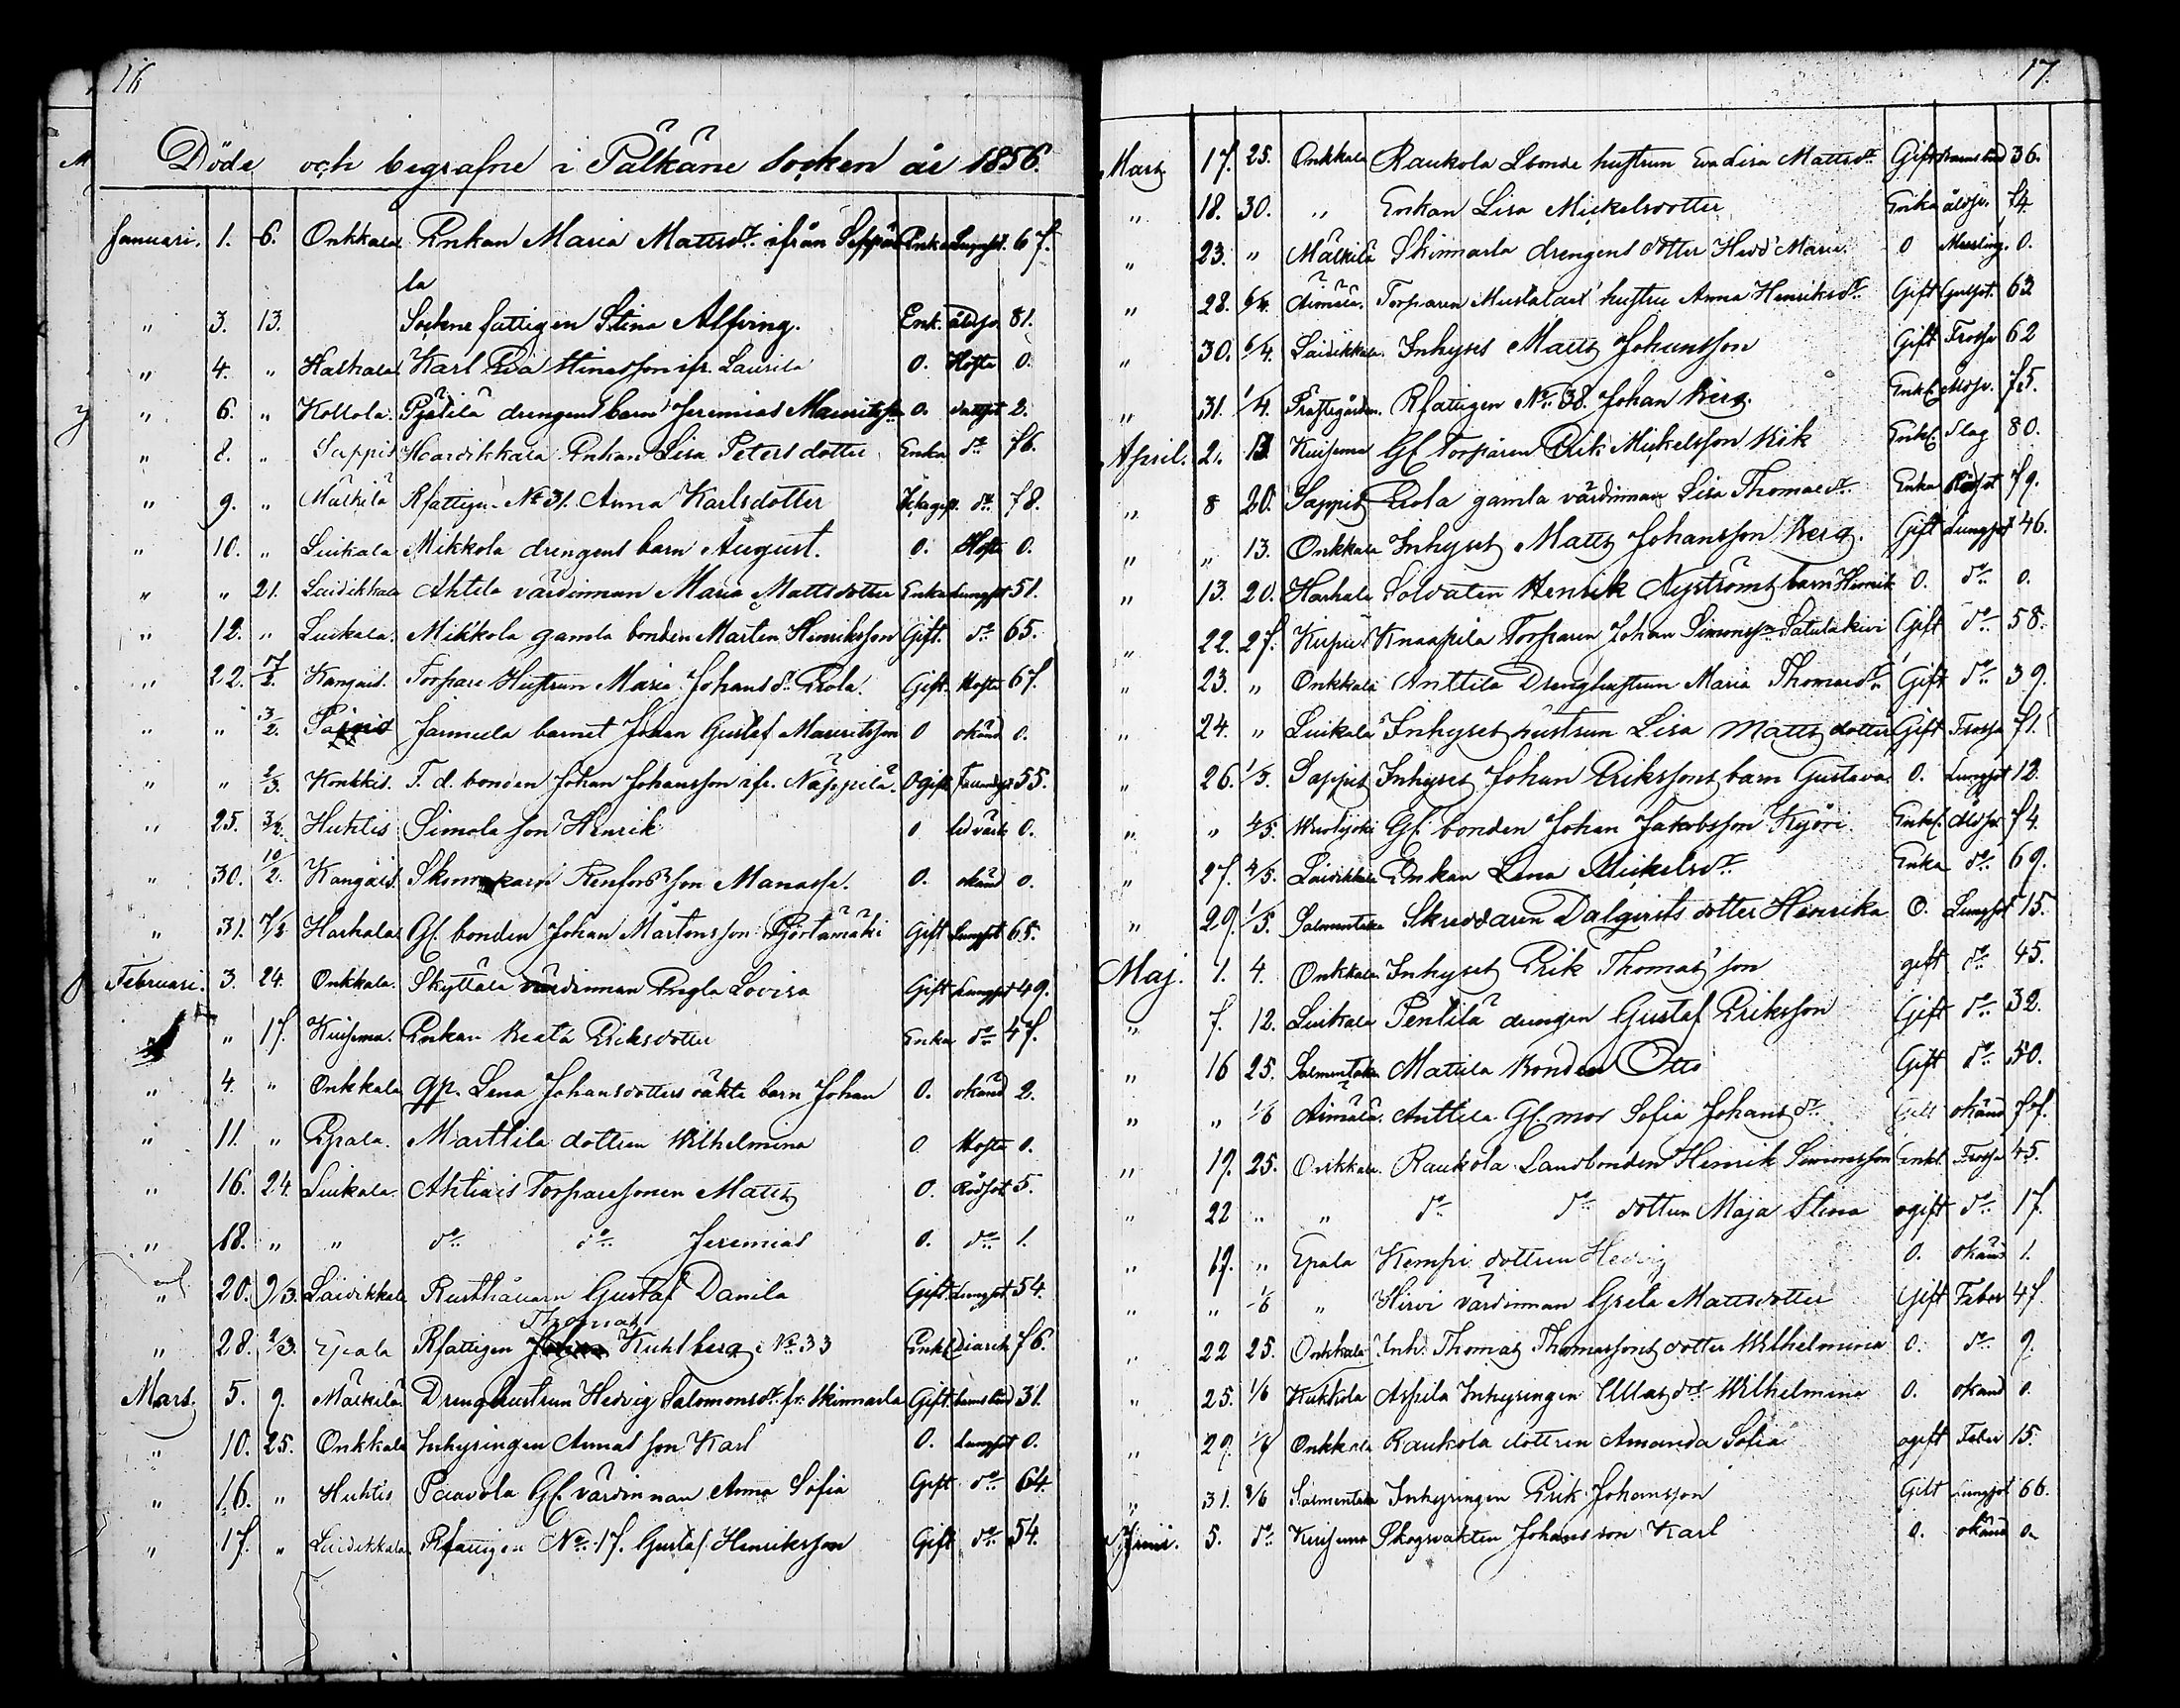 16
Döde och begrafne i Pälkäne Socken år 1856.
Januari. 1. 6. Onkkala Enkan Maria Mattsdr. ifrån Seppä Enka Lungsot. 67.
la
" 3. 13. Sockne fattigen Stina Alfving. Enk. åldr. 81.
" 4. " Harhala Karl Eva Stinasson ifr. Laurila 0. Hosta 0.
" 6. " Kollola. drengens barn Jeremias Mauritsson 0. vattsot 2.
" 8. " Sappis Haardikkala Enkan Lisa Petersdotter Enka do 76.
" 9. " Mälkilä Rfattigen No 31. Anna Karlsdotter do. 78.
" 10. " Luikala Mikkola drengens barn August. 0. Hosta 0.
" " 21. Laidikkala Ahtila värdinnan Maria Mattsdotter Enka Lungsot 51.
" 12. " Luikala. Mikkola gamla bonden Mårten Henriksson Gift. do 65.
" 22. 7/2. Kangais. Torpare Hustrun Maria Johansdr. Erola. Gift. Hosta 67.
" " 3/2. Jarmula barnet Johan Gustaf Mauritsson 0 okänd 0.
" " 2/3. Konkkis. F. d. bonden Johan Johansson ifr. Näppilä. Ogift 55.
" 25. 3/2. Huhtis Simola son Henrik 0 0.
" 30. 10/2. Kangais. Renfors son Manasse. 0. okänd 0.
" 31. 7/2. Harhala Gl. bonden Johan Mårtensson Pjörtämäki Gift Lungsot 65.
Februari. 3. 24. Onkkala. Skyttälä värdinnan Engla Lovisa Gift Lungsot 49.
" " 17. Kuisema. Enkan Beata Eriksdotter Enka do 47.
" 4. " Onkkala qp. Lena Johansdotters oäkta barn Johan 0. okänd 2.
" 11. " Epala. Marttila dottren Wilhelmina 0. Hosta 0.
" 16. 24. Luikala. Ahtiais Torparesonen Matts 0. Rödsot 5.
" 18. " " do. do. Jeremias 0. do. 1.
" 20. 9/3. Laidikkala Rusthållaren Gustaf Danila Gift. Lungsot 54.
Thomas
" 28. 2/3. Epala Rfattigen Kuhlberg No. 33 Enkl. 76.
Mars. 5. 9. Mälkilä. Drenghustrun Hedvig Salomonsdr. fr. Skinnarla Gift. barnsbörd 31.
" 10. 25. Onkkala Inhysingen Annas son Karl 0. Lungsot 0.
" 16. " Huhtis Paavola Gl. värdinnan Anna Sofia Gift do. 64.
" 17. " Laidikkala. Rfattigen No. 17. Gustaf Henriksson Gift do. 54.
17.
Mars 17. 25. Onkkala Raukola Lbonde hustrun Eva Lisa Mattsdr. Gift barnsbörd 36.
" 18. 30. " Enkan Lisa Mickelsdotter Enka åldr. 74.
" 23. " Mälkilä Skinnarla drengens dotter Hedd Maria. 0 Messling. 0.
" 28. 6/4. Äimälä. Torparen Mustalais hustru Anna Henriksdr. Gift Gulsot. 63
" 30. 6/4. Laidikkala. Inhyses Matts Johansson Gift Frossa 62
" 31. 1/4. Prästgården. Rfattigen No. 38. Johan Berg. Enkl. åldr. 75.
April. 2. 13. Kuisema Gl. Torparen Erik Mickelsson Kik Enkl. slag 80.
" 8 20. Sappis Erola gamla värdinnan Lisa Thomasdr. Enka Rödsot 79.
" " 13. Onkkala Inhyses Matts Johansson Berg. Gift Lungsot 46.
" 13. 20. Harhala Soldaten Henrik Nyströms barn Henrik 0. do. 0.
" 22. 27. Knaapila Torparen Johan Simonsson Satulakivi Gift do. 58.
" 23. " Onkkala Anttila Drenghustrun Maria Thomasdr. Gift do. 39.
" 24. " Luikala Inhyses hustrun Lisa Matts dotter Gift Frossa 71.
" 26. 1/5. Sappis Inhyses Johan Erikssons barn Gustava. 0. Lungsot 12.
" " 4/5. Gl. bonden Johan Jakobsson Kyöri Enkl. åldr. 74.
" 27. 4/5. Laidikkala Enkan Lena Mickelsdr. Enka do. 69.
" 29. 1/5. Salmentaka Skreddaren Dalqvists dotter Henrika 0. Lungsot 15.
Maj. 1. 4. Onkkala Inhyses Erik Thomas son gift do. 45.
" 7. 12. Luikala Pentilä drengen Gustaf Eriksson Gift do. 32.
" 16 25. Salmentaka Mattila Bonden Otto Gift do. 50.
" " 1/6 Äimälä. Anttila Gl. mor Sofia Johans dr. Gift okänd 77.
" 19. 25. Onkkala. Raukola Landbonden Henrik Simonsson Enkl. Frossa 45.
" 22 " " do. do. dottren Maja Stina ogift do. 17.
" 19. " Epala Kempi dottren Hedvig 0. okänd 1.
" " 1/6 " Hirvi värdinnan Greta Mattsdotter Gift Feber 47
" 22 25. Onkkala Inh. Thomas Thomassons dotter Wilhelmina 0. do. 9.
" 25. 1/6 Kukkola Aspila Inhysingen Ullas dr. Wilhelmina 0. okänd 0.
" 29. Onkkala Raukola dottren Amanda Sofia ogift Feber 15.
" 31. 8/6 Salmentaka Inhysingen Erik Johansson Gift Lungsot 66.
Junii. 5. do. Kuisema Skogvakten Johans son Karl 0. okänd 0.